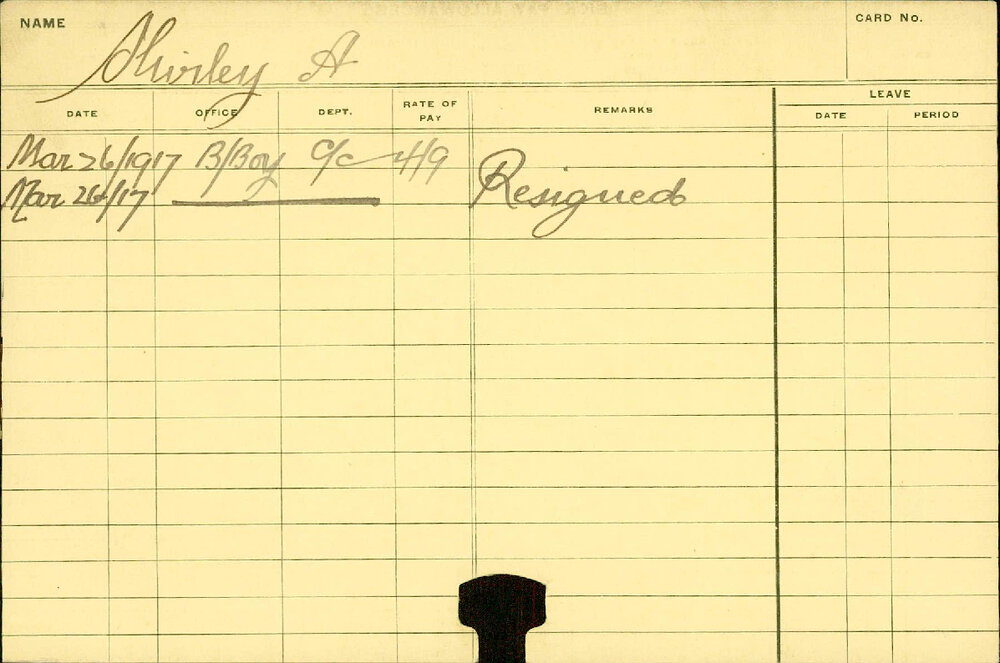 NAME Shirley A CARD No.
DATE OFFICE DEPT. RATE OF PAY REMARKS LEAVE
DATE PERIOD
Mar 26/1917 B/Boy C/C 4/9
Mar 26/17 Resigned